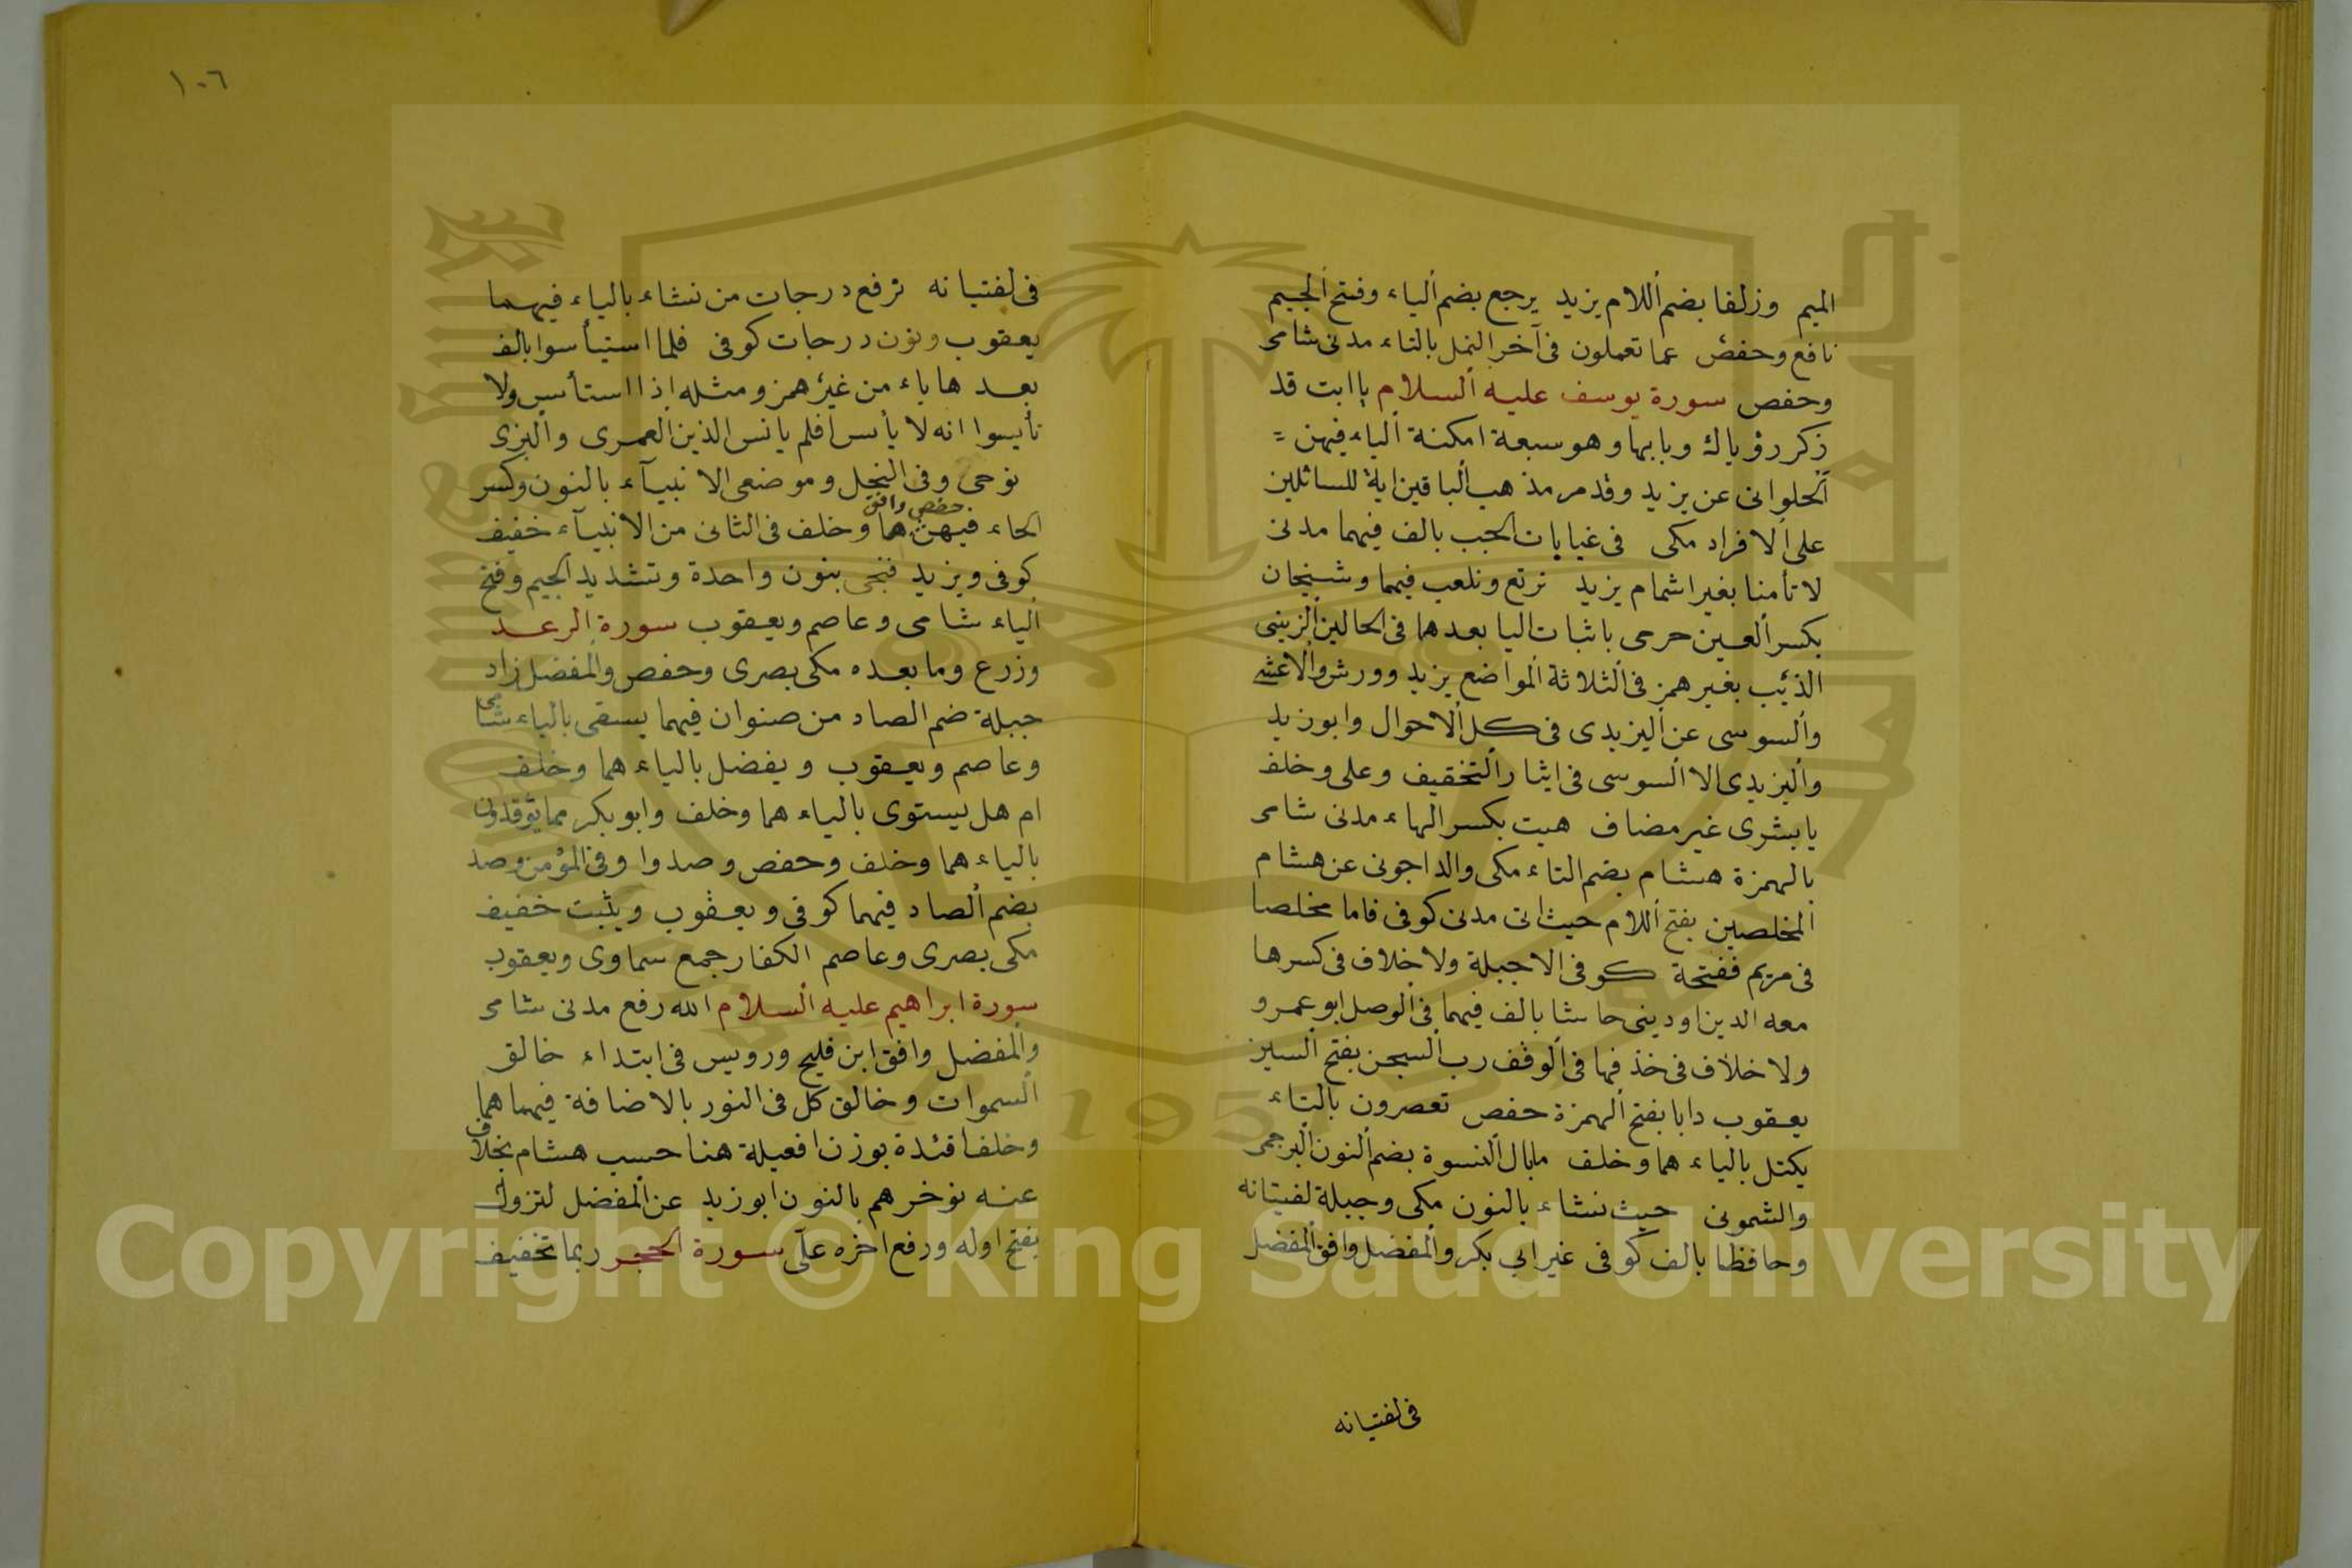 الميم وزلفا بضم اللام يزيد يرجع بضم الياء وفتح الجيم
نافع وحفص عما تعملون فى آخر النمل بالتاء مدنى شامى
وحفص سورة يوسف عليه السلام ياابت قد
ذكر رؤياك وبابها وهو سبعة امكنة الياء فيهن =
الحلوانى عن يزيد وقد مر مذهب الباقين اية للسائلين
على الافراد مكى فى غيابات الجب بالف فيهما مدنى
لا تأمنا بغير اشمام يزيد نرتع ونلعب فيهما وشينجان
بكسر العين حرمى باثبات اليا بعدها فى الحالين الزينبى
الذئب بغير همز فى الثلاثة المواضع يزيد وورش والاعشى
والسوسى عن اليزيدى فى كل الاحوال وابو زيد
واليزيدى الا السوسى فى ايثار التخفيف وعلى وخلف
يا بشرى غير مضاف هيت بكسر الهاء مدنى شامى
بالهمزة هشام بضم التاء مكى والداجونى عن هشام
المخلصين بفتح اللام حيث اتى مدنى كوفى فاما مخلصا
فى مريم ففتحة كوفى الا جبلة ولا خلاف فى كسرها
معه الدين او دينى حاشا بالف فيهما فى الوصل ابو عمرو
ولا خلاف فى خذفها فى الوقف رب السجن بفتح السين
يعقوب دابا بفتح الهمزة حفص تعصرون بالتاء
يكتل بالياء هما وخلف مابال النسوة بضم النون البرجمى
والشمونى حيث نشاء بالنون مكى وجبلة لفتيانه
وحافظا بالف كوفى غير ابي بكر والمفضل وافق المفضل
فى لفتيانه
١٠٦
فى لفتيانه نرفع درجات من نشاء بالياء فيهما
يعقوب ونون درجات كوفى فلما استيأسوا بالف
بعدها ياء من غير همز ومثله اذا استأيس ولا
تأيسوا انه لا يأيس افلم يانس الذين العمرى والبزى
نوحى وفى النحل وموضعى الانبيآء بالنون وكسر
الحاء فيهن حفص وافق هما وخلف فى الثانى من الانبيآء خفيف
كوفى ويزيد فنجى بنون واحدة وتشديد الجيم وفتح
الياء شامى وعاصم ويعقوب سورة الرعد
وزرع وما بعده مكى بصرى وحفص والمفضل زاد
جبلة ضم الصاد من صنوان فيهما يسقى بالياء شامى
وعاصم ويعقوب ويفضل بالياء هما وخلف
ام هل يستوى بالياء هما وخلف وابو بكر مما يوقدون
بالياء هما وخلف وحفص وصدوا وفى المؤمن وصد
بضم الصاد فيهما كوفى ويعقوب ويثبت خفيف
مكى بصرى وعاصم الكفار جمع سماوى ويعقوب
سورة ابراهيم عليه السلام الله رفع مدنى شامى
والمفضل وافق ابن فليح ورويس فى ابتداء خالق
السموات وخالق كل فى النور بالاضافة فيهما هما
وخلف افئدة بوزن افعيلة هنا حسب هشام بخلاف
عنه نوخرهم بالنون ابو زيد عن المفضل لتزول
بفتح اوله ورفع اخره علّى سورة الحجر ربما تخفيف
1957
Copyright © King Saud University